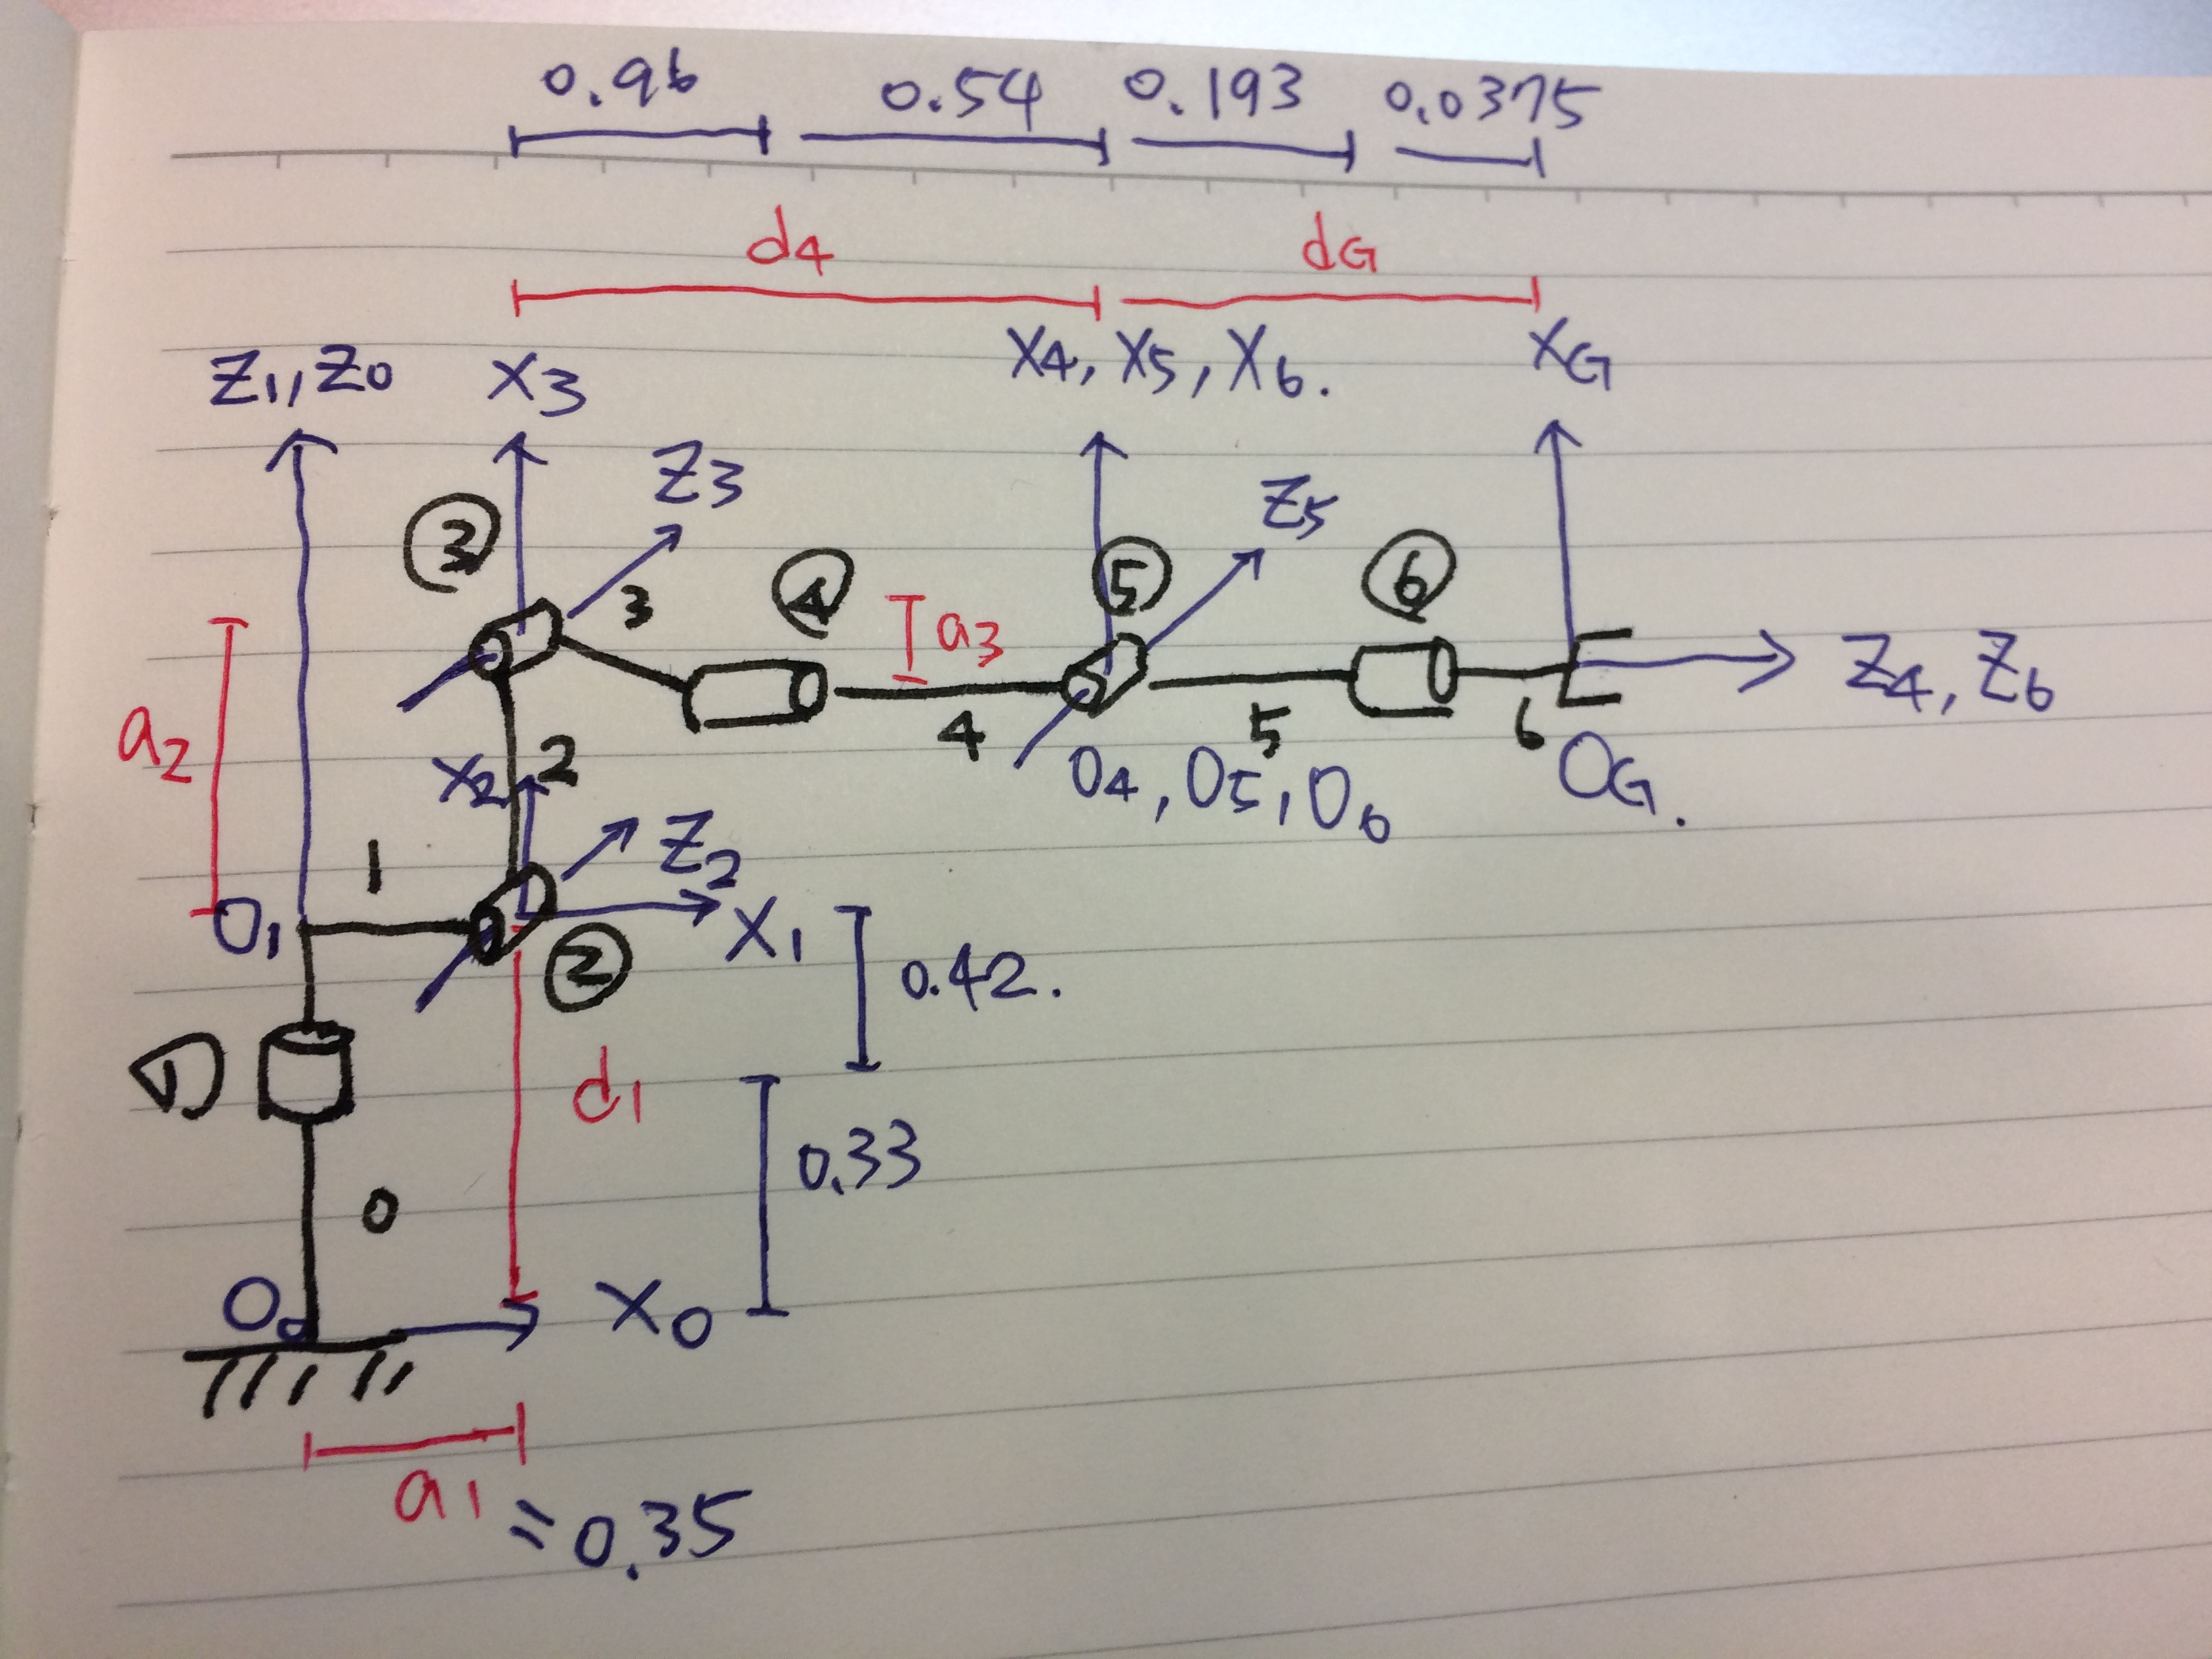 0.96 0.54 0.193 0.0375
d4 dG
Z1, Z0 X3 X4, X5, X6. XG
Z3 Z5
3 3 4 5 6
a3
Z4, Z6
a2 X2 2 4 5 6
O4, O5, O6 OG.
Z2
1
O1 X1
2 0.42.
1 d1
0.33
0
O0 X0
a1 = 0.35